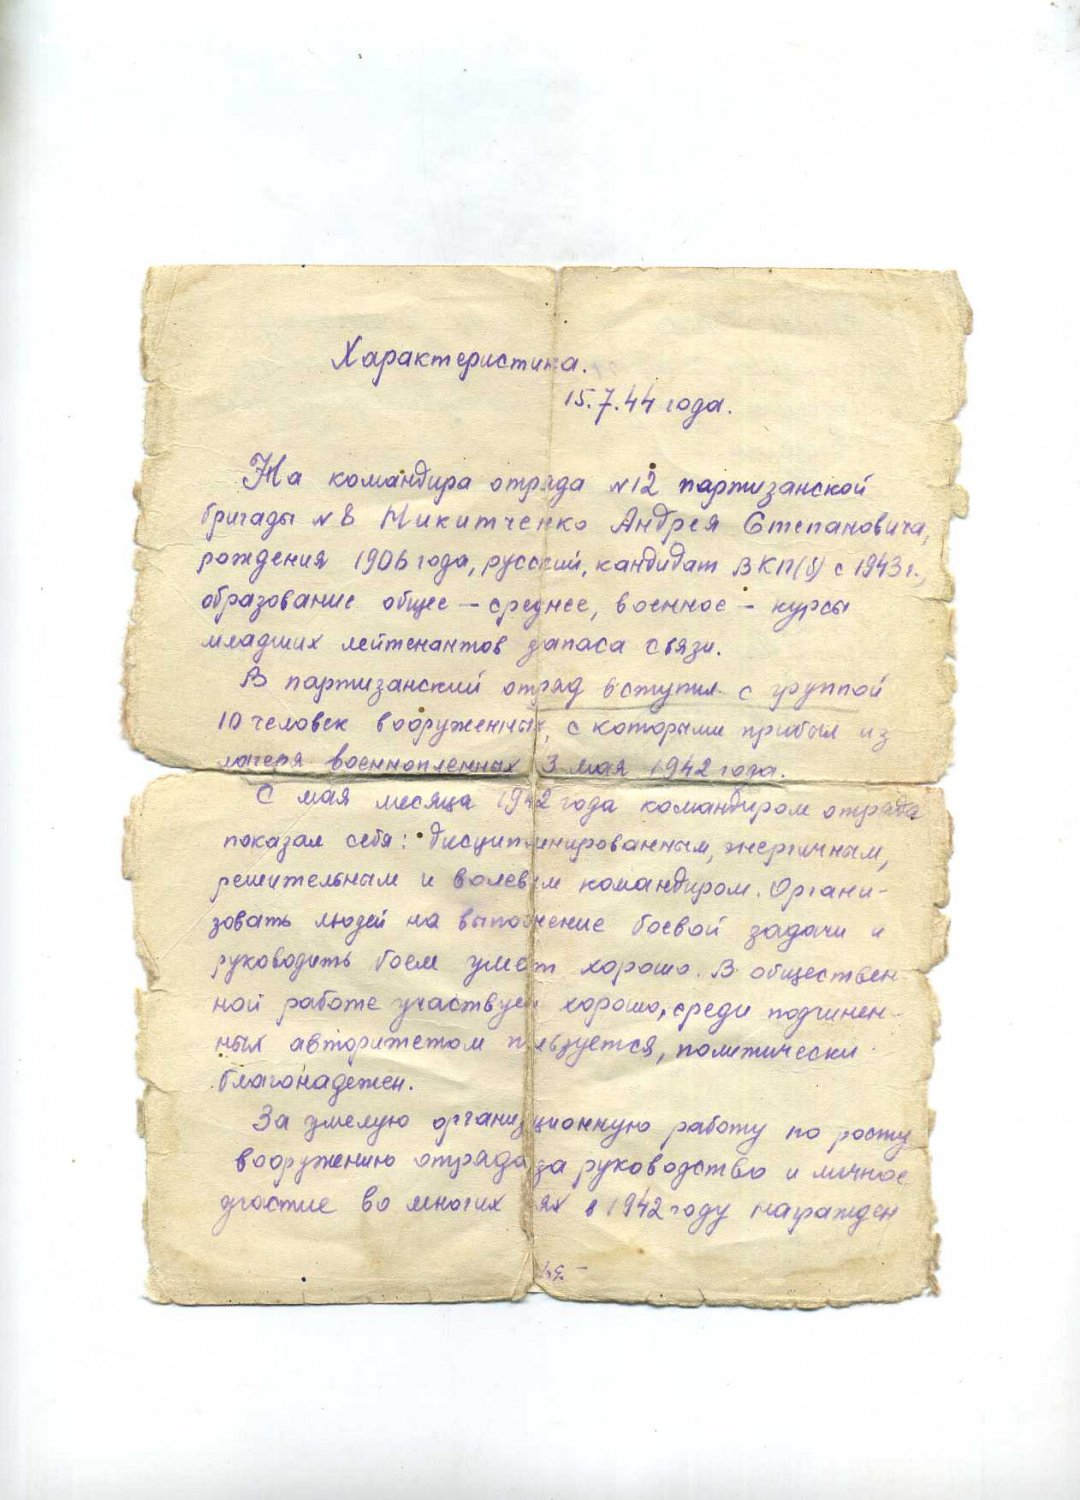 Характеристика.
15.7.44 года.
На командира отряда №12 партизанской
бригады №8 Никитченко Андрея Степановича,
рождения 1906 года, русский, кандидат ВКП(б) с 1943 г.,
образование общее — среднее, военное — курсы
младших лейтенантов запаса связи.
В партизанский отряд вступил с группой
10 человек вооруженных, с которыми прибыл из
лагеря военнопленных 3 мая 1942 года.
С мая месяца 1942 года командиром отряда
показал себя: дисциплинированным, энергичным,
решительным и волевым командиром. Органи-
зовать людей на выполнение боевой задачи и
руководить боем умеет хорошо. В обществен-
ной работе участвует хорошо, среди подчинен-
ных авторитетом пользуется, политически
благонадежен.
За умелую организационную работу по росту
вооружению отряда за руководство и личное
участие во многих в 1942 году награжден